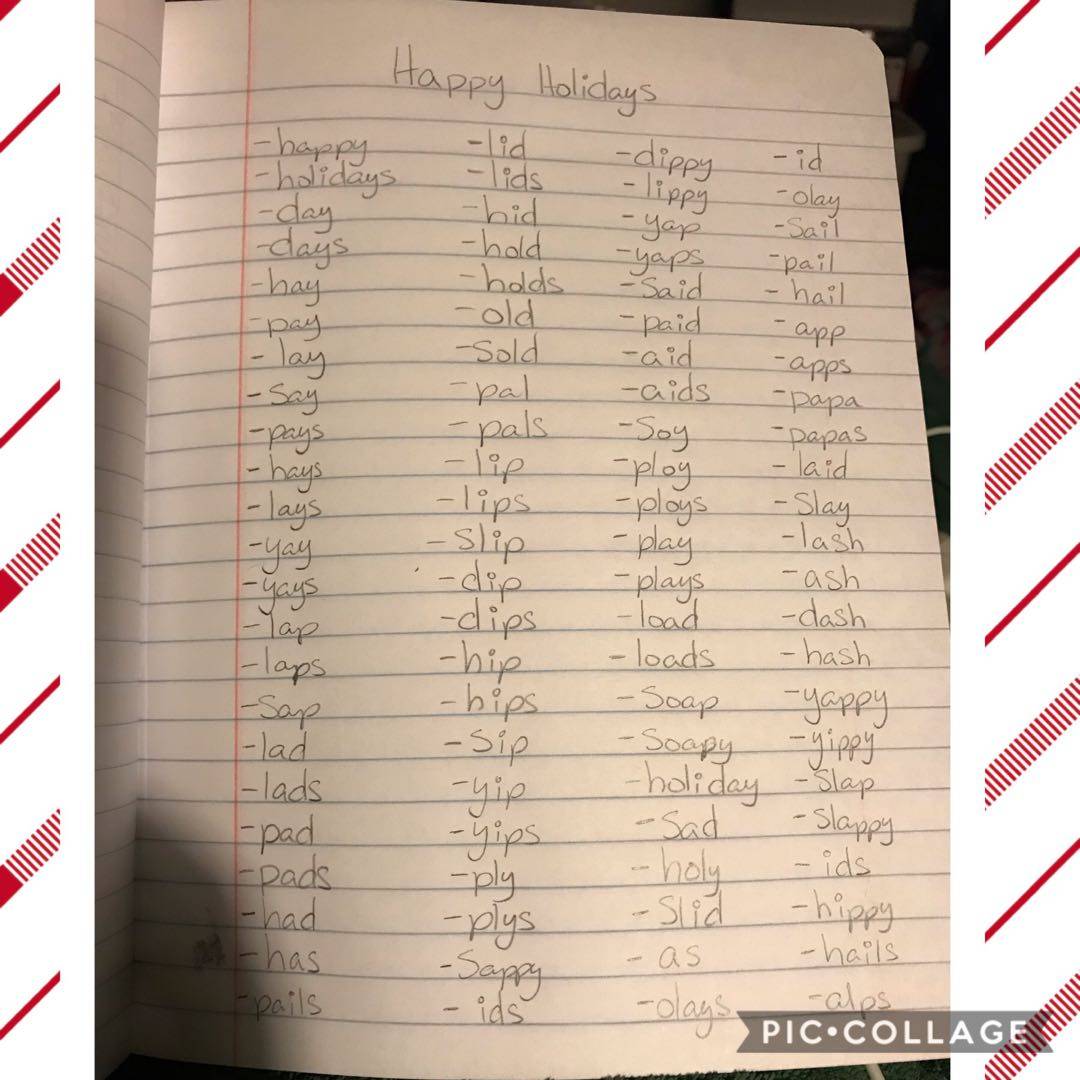 Happy Holidays
-happy -lid -dippy -id
-holidays -lids -lippy -olay
-day -hid -yap -Sail
-days -hold -yaps -pail
-hay -holds -Said -hail
-pay -old -paid -app
-lay -Sold -aid -apps
-Say -pal -aids -papa
-pays -pals -Soy -papas
-hays -lip -ploy -laid
-lays -lips -ploys -Slay
-yay -Slip -play -lash
-yays -dip -plays -ash
-lap -dips -load -dash
-laps -hip -loads -hash
-Sap -hips -Soap -yappy
-lad -Sip -Soapy -yippy
-lads -yip -holiday -Slap
-pad -yips -Sad -Slappy
-pads -ply -holy -ids
-had -plys -Slid -hippy
-has -Sappy -as -hails
-pails -ids -olays -alps
PIC•COLLAGE